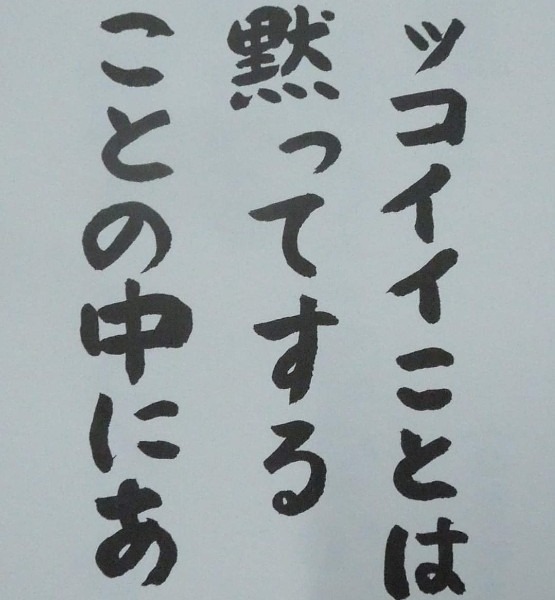 ッコイイことは
黙ってする
ことの中にあ